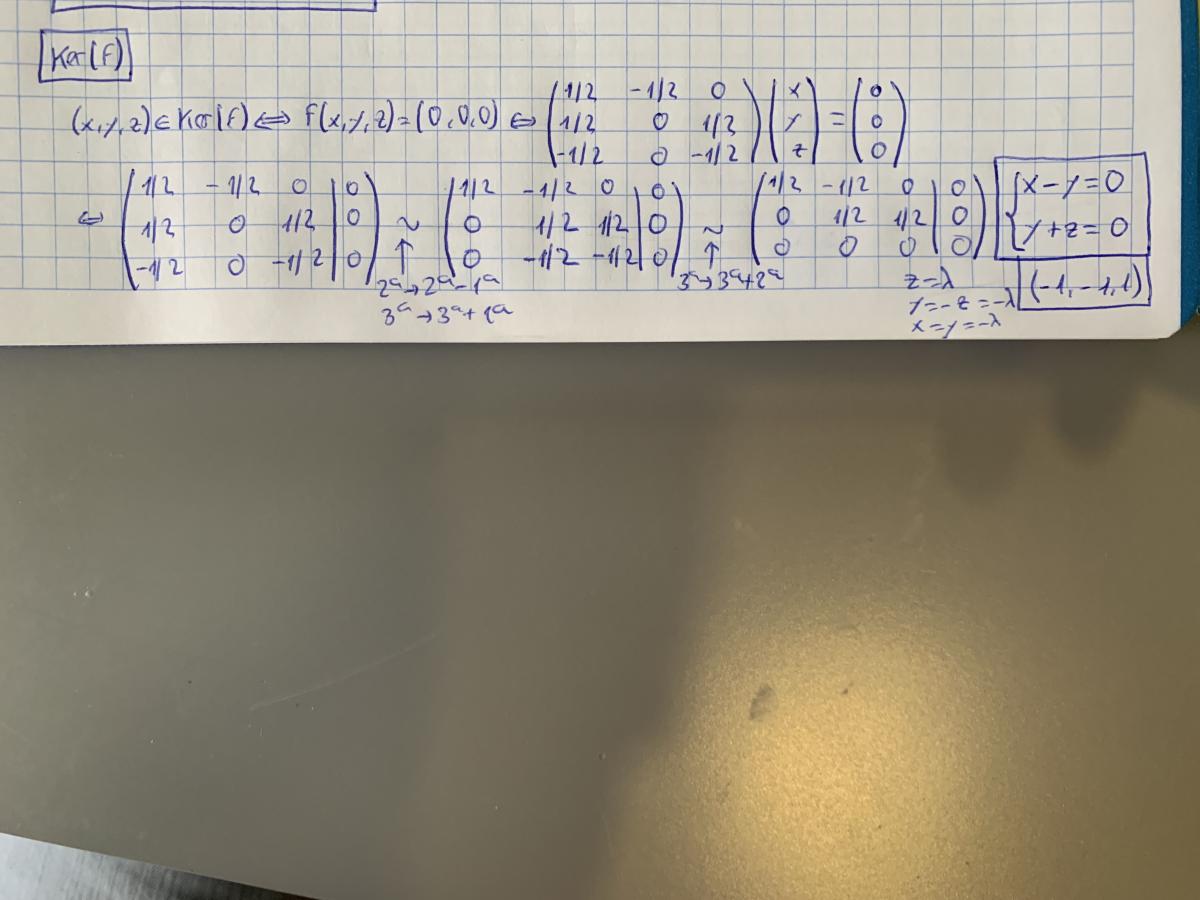 Ker(f)
(x,y,z)∈Ker(f) ⇔ f(x,y,z)=(0,0,0) ⇔ (1/2 -1/2 0; 1/2 0 1/2; -1/2 0 -1/2) (x; y; z) = (0; 0; 0)
⇔ (1/2 -1/2 0 | 0; 1/2 0 1/2 | 0; -1/2 0 -1/2 | 0) ~ (1/2 -1/2 0 | 0; 0 1/2 1/2 | 0; 0 -1/2 -1/2 | 0) ~ (1/2 -1/2 0 | 0; 0 1/2 1/2 | 0; 0 0 0 | 0) { x-y=0; y+z=0
↑ ↑
2ª→2ª-1ª 3ª→3ª+2ª z=λ (-1,-1,1)
3ª→3ª+1ª y=-z=-λ
x=y=-λ